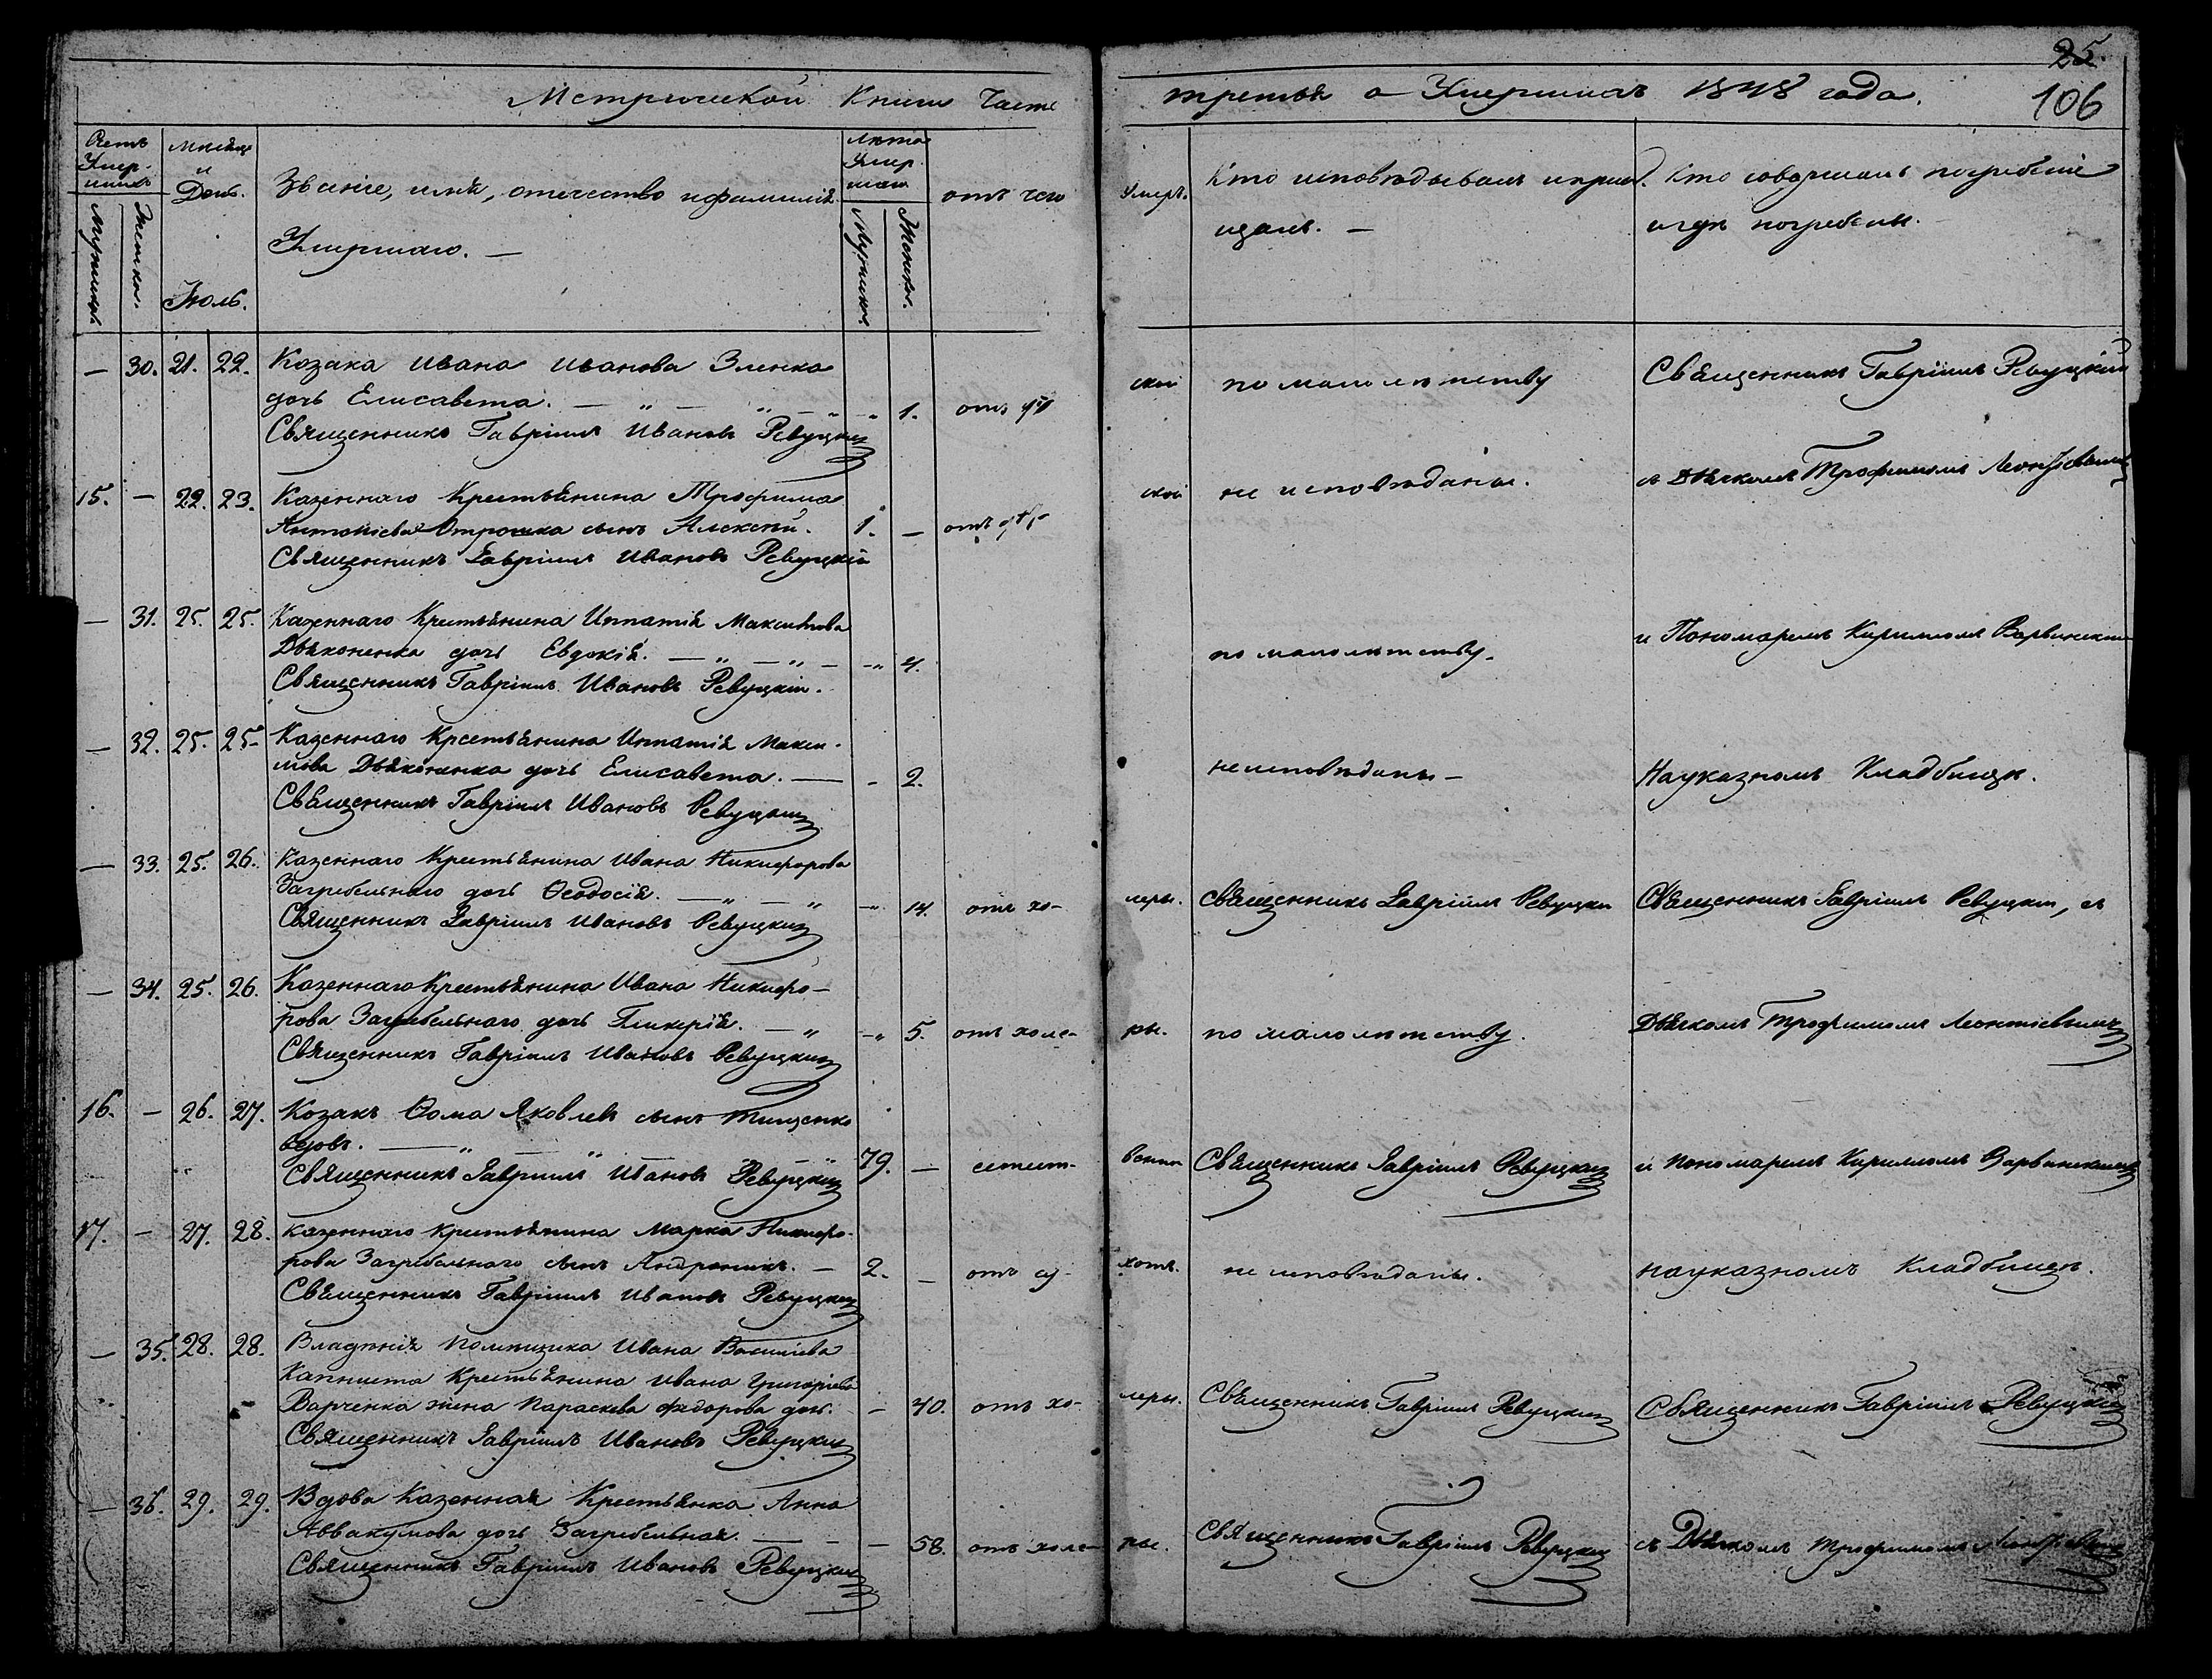 25.
106
Метрической Книги Часть третья о Умершихъ 1848 года.
Счетъ Умершихъ
Мѣсяцъ и День.
Званіе, имя, отечество и фамилія
Умершаго. —
Лѣта Умершаго
отъ чего Умеръ.
Кто исповѣдывалъ и пріобщалъ. —
Кто совершалъ погребеніе
и гдѣ погребены.
Мужеска.
Женска.
Іюль.
Мужеска.
Женска.
— 30. 21. 22. Козака Ивана Иванова Зленка
дочь Елисавета. — 1. отъ ской по малолѣтству
Священникъ Гавріилъ Ивановъ Ревуцкій
Священникъ Гавріилъ Ревуцкій
15. — 22. 23. Казеннаго Крестьянина Трофима
Антоніева Отрошка сынъ Алексѣй. 1. — отъ ской не исповѣданы.
Священникъ Гавріилъ Ивановъ Ревуцкій
съ Дьячкомъ Трофимомъ Леонтіевымъ
— 31. 25. 25. Казеннаго Крестьянина Ипатія Максимова
Дьяконенка дочь Евдокія. — 4. по малолѣтству.
Священникъ Гавріилъ Ивановъ Ревуцкій.
и Пономаремъ Кирилломъ Варвинскимъ
— 32. 25. 25. Казеннаго Крестьянина Ипатія Макси-
мова Дьяконенка дочь Елисавета. — 2. не исповѣданы —
Священникъ Гавріилъ Ивановъ Ревуцкій
На указномъ Кладбищѣ.
— 33. 25. 26. Казеннаго Крестьянина Ивана Никифорова
Загребельнаго дочь Ѳеодосія. — 14. отъ холеры. Священникъ Гавріилъ Ревуцкій
Священникъ Гавріилъ Ивановъ Ревуцкій
Священникъ Гавріилъ Ревуцкій, съ
— 34. 25. 26. Казеннаго Крестьянина Ивана Никифо-
рова Загребельнаго дочь Гликерія. — 5. отъ холеры. по малолѣтству.
Священникъ Гавріилъ Ивановъ Ревуцкій
Дьячкомъ Трофимомъ Леонтіевымъ
16. — 26. 27. Козакъ Ѳома Яковлевъ сынъ Тищенко
вдовъ. — 79. — естественно Священникъ Гавріилъ Ревуцкій
Священникъ Гавріилъ Ивановъ Ревуцкій
и Пономаремъ Кирилломъ Варвинскимъ
17. — 27. 28. Казеннаго Крестьянина Марка Никифо-
рова Загребельнаго сынъ Андроникъ. — 2. — отъ сухотъ. не исповѣданы.
Священникъ Гавріилъ Ивановъ Ревуцкій
на указномъ Кладбищѣ.
— 35. 28. 28. Владѣнія помѣщика Ивана Василіева
Капниста Крестьянина Ивана Григоріева
Варченка жена Параскева Федорова дочь. — 40. отъ холеры. Священникъ Гавріилъ Ревуцкій
Священникъ Гавріилъ Ивановъ Ревуцкій
Священникъ Гавріилъ Ревуцкій
— 36. 29. 29. Вдова Казенная Крестьянка Анна
Аввакумова дочь Загребельная. — 58. отъ холеры. Священникъ Гавріилъ Ревуцкій
Священникъ Гавріилъ Ивановъ Ревуцкій
съ Дьячкомъ Трофимомъ Леонтіевымъ